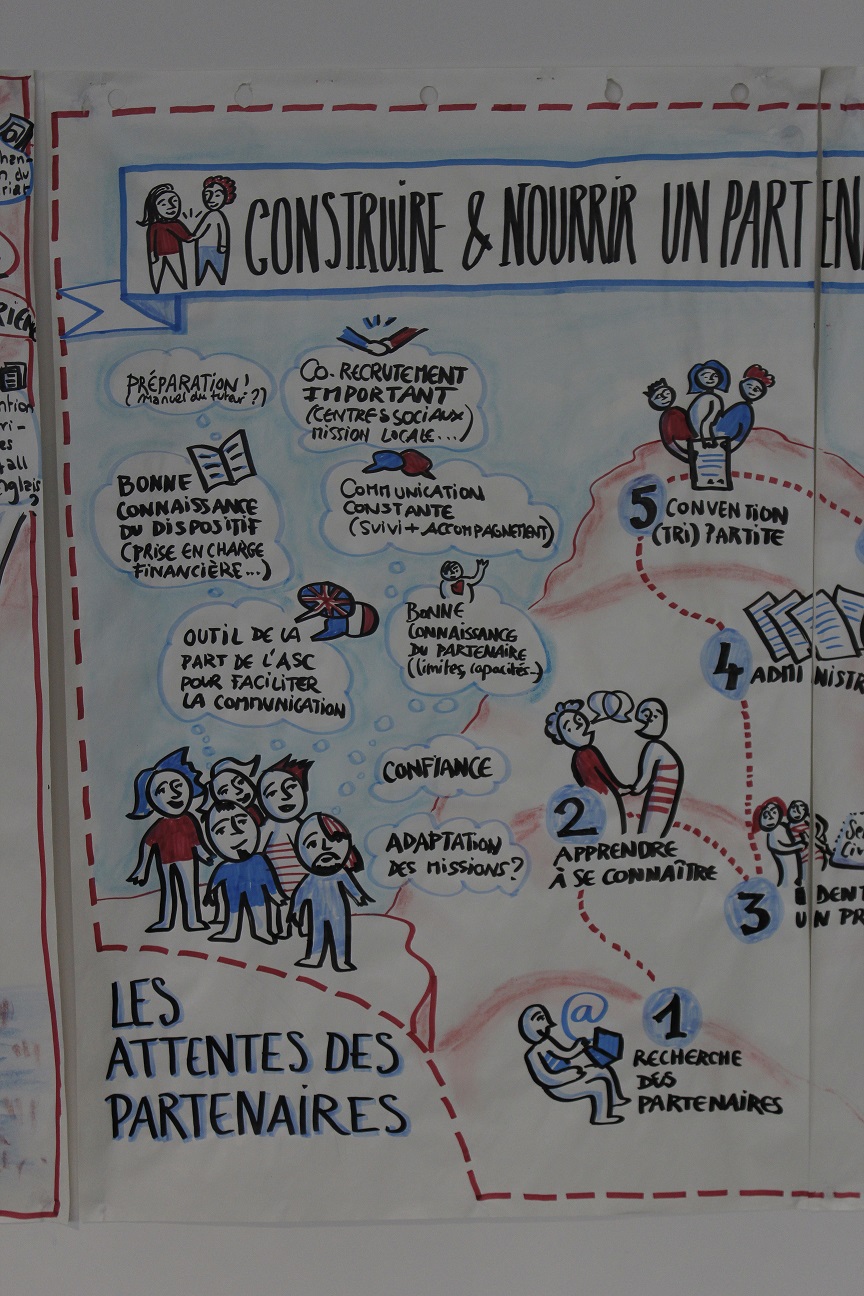 CONSTRUIRE & NOURRIR UN PARTENA
PRÉPARATION!
(Manuel du tutar?)
CO-RECRUTEMENT
IMPORTANT
(CENTRES SOCIAUX
MISSION LOCALE...)
BONNE
CONNAISSANCE
DU DISPOSITIF
(PRISE EN CHARGE
FINANCIÈRE...)
COMMUNICATION
CONSTANTE
(SUIVI + ACCOMPAGNEMENT)
OUTIL DE LA
PART DE L'ASC
POUR FACILITER
LA COMMUNICATION
BONNE
CONNAISSANCE
DU PARTENAIRE
(limites, capacités...)
CONFIANCE
ADAPTATION
DES MISSIONS?
LES
ATTENTES DES
PARTENAIRES
5 CONVENTION
(TRI) PARTITE
4
ADMINISTR
2
APPRENDRE
À SE CONNAÎTRE
3 IDENT
UN PR
@ 1
RECHERCHE
DES
PARTENAIRES